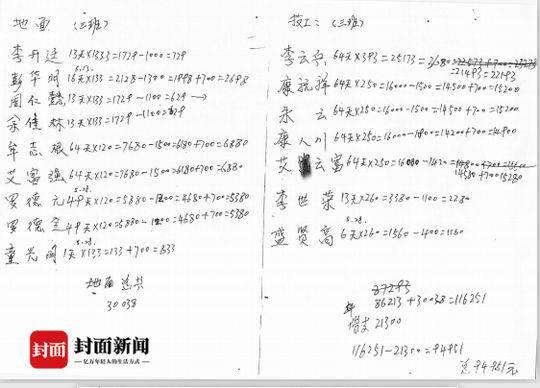 地面 (三班)
李升廷 13天×133=1729-1000=729
彭华明 16天×133=2128-1300= +700=2698
周仁 13天×133=1729-1100=629→
余佳林 13天×133=1729-1100=629
牟志银 64天×120=7680-1500=6180+700=6880
艾富强 64天×120=7680-1500=6180+700=6880
罗德元 49天×120=5880-1200=4680+700=5380
罗德全 49天×120=5880-1200=4680+700=5380
童光明 1天×133=133+700=833
地面总共
30038
技工: (三班)
李云 64天×393=25173
=21493=22193
康祝祥 64天×250=16000-1500=14500+700=15200
永云 64天×250=16000-1500=14500+700=15200
康人川 64天×250=16000-1800=14200+700=14900
艾云富 64天×250=16000-1420=
14580+700=15280
李世荣 13天×260=3380-1100=2280
盛贤高 6天×260=1560-400=1160
86213+30038=116251
借支 21300
116251-21300=94951
总94951元
封面 封面新闻
亿万年轻人的生活方式